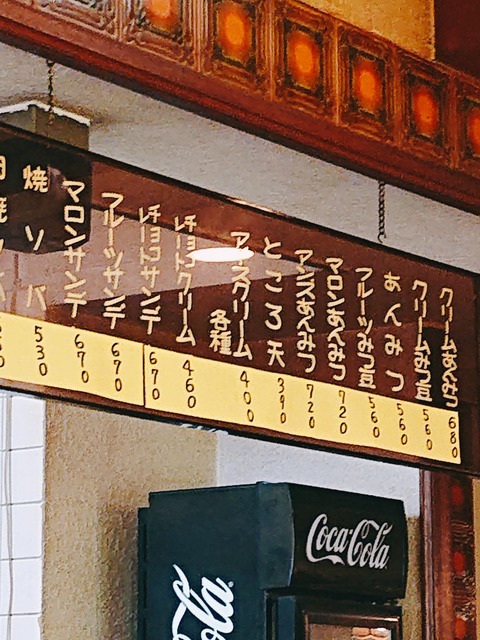 クリームあんみつ 680
クリームみつ豆 560
あんみつ 560
フルーツみつ豆 560
マロンあんみつ 720
アンズあんみつ 720
ところ天 390
アイスクリーム各種 400
チョコレートクリーム 460
チョコレートサンデー 670
フルーツサンデー 670
マロンサンデー 670
焼ソバ 530
Coca-Cola
ola